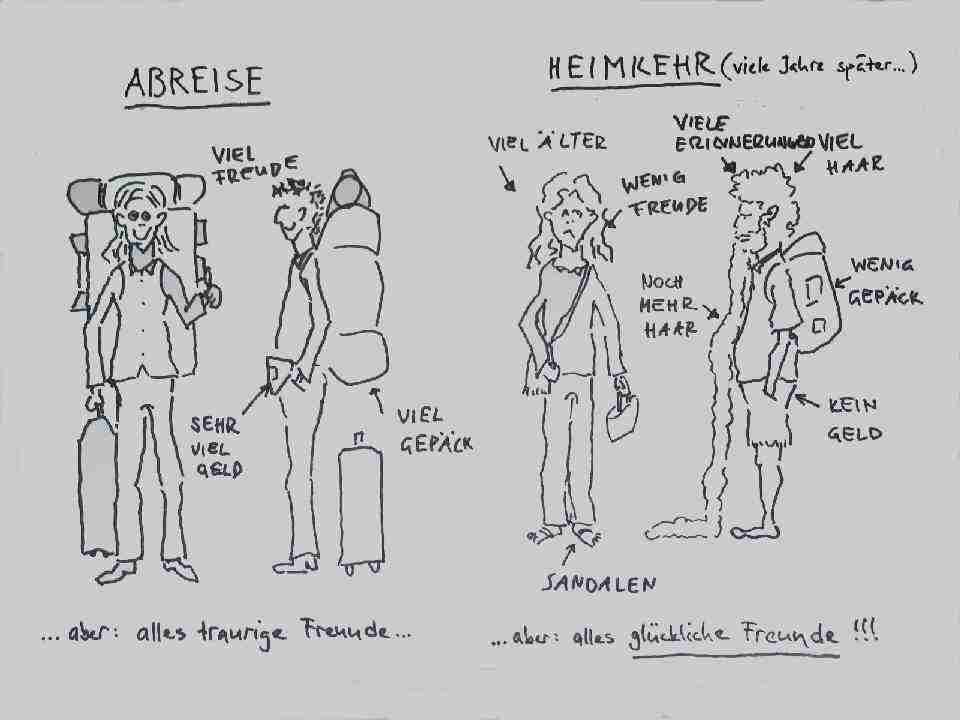 ABREISE
VIEL
FREUDE
SEHR
VIEL
GELD
VIEL
GEPÄCK
... aber: alles traurige Freunde...
HEIMKEHR (viele Jahre später...)
VIEL ÄLTER
WENIG
FREUDE
VIELE
ERINNERUNGEN
VIEL
HAAR
NOCH
MEHR
HAAR
WENIG
GEPÄCK
KEIN
GELD
SANDALEN
...aber: alles glückliche Freunde !!!